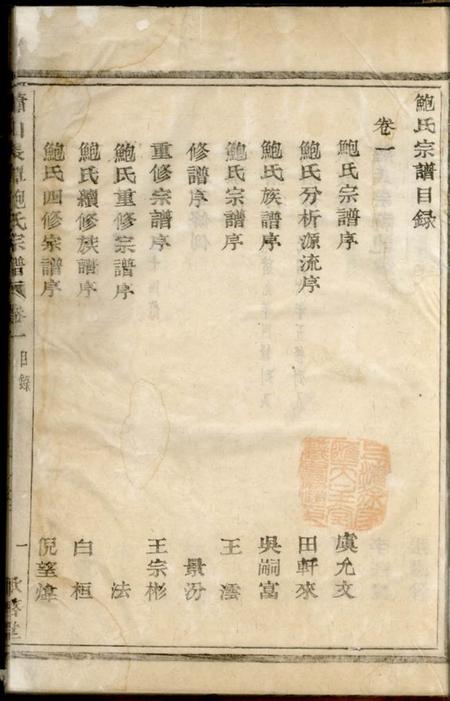 鮑氏宗譜目録
卷一
鮑氏宗譜序 虞允文
鮑氏分析源流序 田軒來
鮑氏族譜序 吳嗣富
鮑氏宗譜序 王澐
修譜序 景汾
重修宗譜序 王宗彬
鮑氏重修宗譜序 法
鮑氏續修族譜序 白桓
鮑氏四修宗譜序 倪望煒
山長潭鮑氏宗譜 卷一 目錄 一